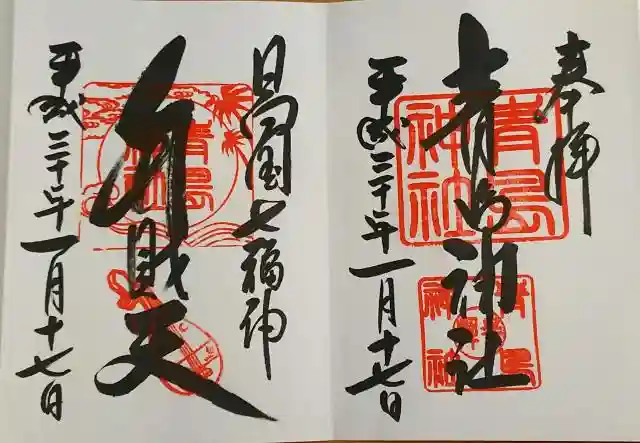 奉拝
青島神社
平成三十年一月十七日
青島神社
日向国七福神
弁財天
平成三十年一月十七日
青島神社